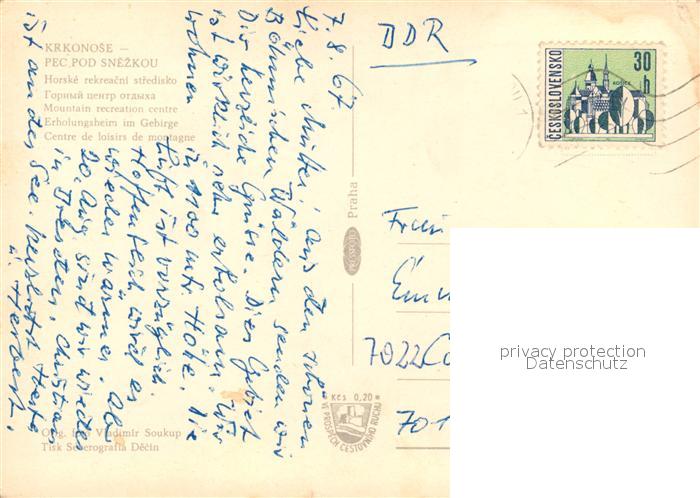 KRKONOŠE –
PEC POD SNĚŽKOU
Horské rekreační středisko
Горный центр отдыха
Mountain recreation centre
Erholungsheim im Gebirge
Centre de loisirs de montagne
7. 8. 67.
Liebe Mutter! Aus den schönen
Böhmischen Wäldern senden wir
Dir herzliche Grüsse. Dies Gebiet
ist wirklich sehr erholsam. Wir
wohnen in 1100 mtr Höhe. Die
Luft ist vorzüglich.
Hoffentlich wird es
wieder wärmer. Ab
20. Aug. sind wir wieder
in Dresden. Christian
ist an der See. Herzlichst Herta
u. Herbert.
Orig. foto Vladimír Soukup
Tisk Severografia Děčín
Praha
PRESSFOTO
Kčs 0,20
VE PROSPĚCH CESTOVNÍHO RUCHU
DDR
ČESKOSLOVENSKO
30 h
KOŠICE
Frau
7022
701
privacy protection
Datenschutz